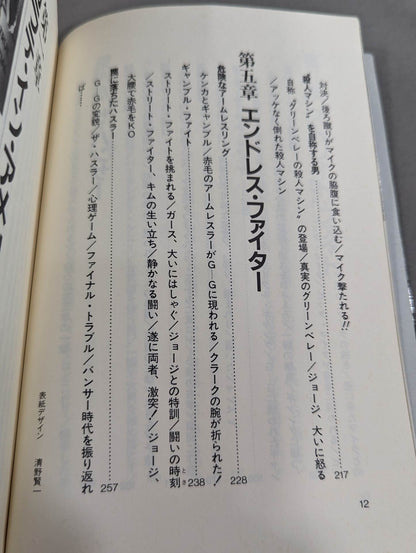 対決/後ろ蹴りがマイクの脇腹に食い込む/マイク撃たれる!!
"殺人マシン"を自称する男……217
自称"グリーンベレーの殺人マシン"の登場/真実のグリーンベレー/ジョージ、大いに怒る
/アッケなく倒れた殺人マシン
第五章 エンドレス・ファイター
危険なアームレスリング……228
ケンカとギャンブル/赤毛のアームレスラーがG—Gに現われる/クラークの腕が折られた!
ギャンブル・ファイト……238
ストリート・ファイトを挑まれる/ガース、大いにはしゃぐ/ジョージとの特訓/闘いの時刻
とき
/ストリート・ファイター、キムの生い立ち/静かなる闘い/遂に両者、激突!/ジョージ、
大腰で赤毛をKO
罠に落ちたハスラー……257
G—Gの変貌/ザ・ハスラー/心理ゲーム/ファイナル・トラブル/バンサー時代を振り返れ
ば……
表紙デザイン 清野賢一
12